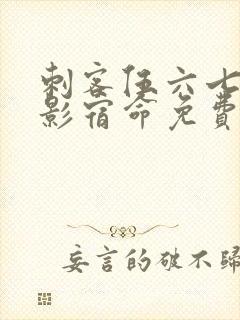 刺客伍六七
影宿命免费
妄言的破不归